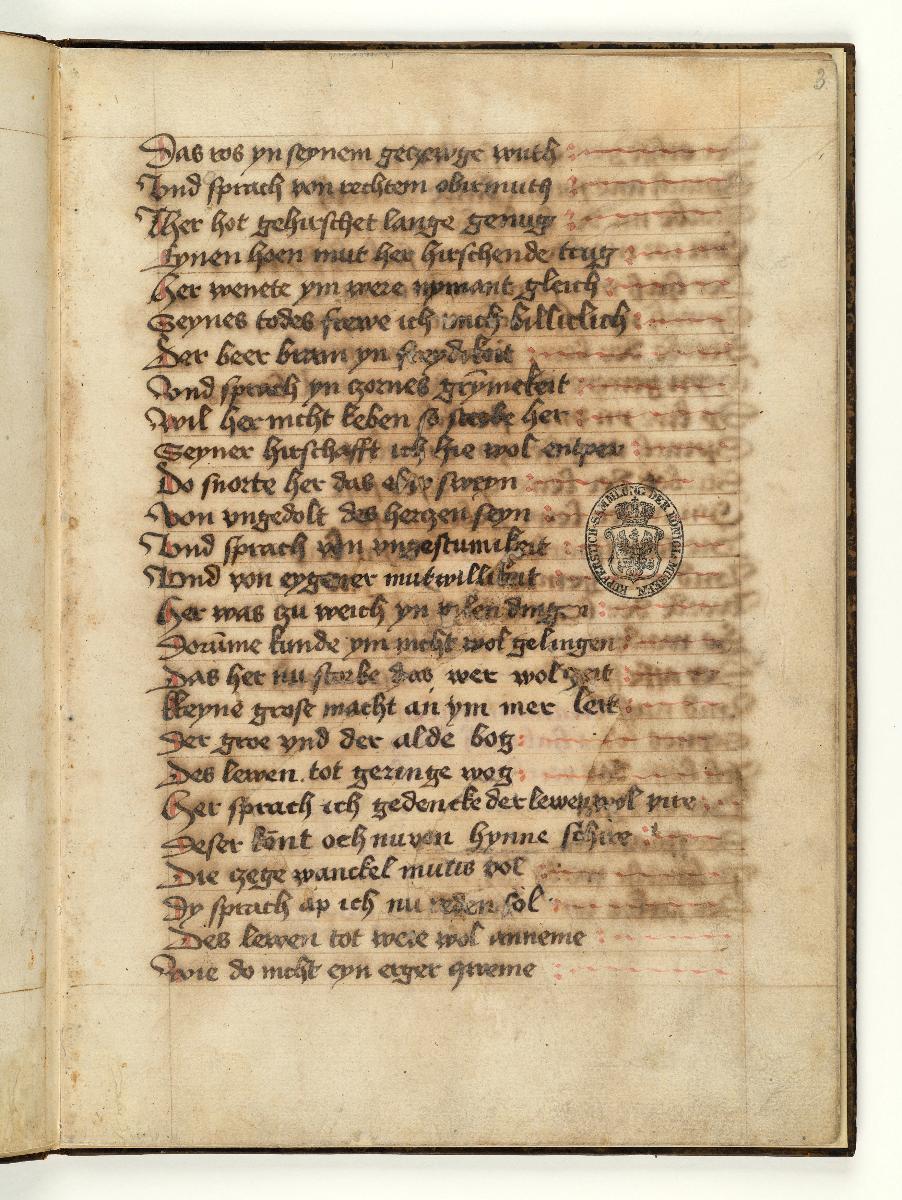 3
Das ros yn seynem geczewge wuth
Vnd sprach von rechtem obirmuth
Ther hot gehirschet lange genug
Eynen hoen mut her hirschende trug
her wenete ym were nymant gleich
Seynes todes frewe ich mich billirlich
Der beer bram yn freydikeit
Vnd sprach yn czornes grymekeit
Wil her nicht leben so sterbe her
Seyner hirschafft ich hie wol entper
Do snorte her das sweyn
Von vngedolt des herczen seyn
Vnd sprach von vngestumikeit
Vnd von eygener mutwillikeit
her was czu weich yn dingen
Dorūme kunde ym nicht wol gelingen
Das her nu sterbe das wer wol czeit
keyne grose macht an ym mer leit
Der groe vnd der alde bog
Des lewen tot geringe wog
her sprach ich gedencke der lewen wol vire
Deser kōnt och nu von hynne schire
Die czege wanckel mutis vol
Dy sprach ap ich nu reden sol
Des lewen tot were wol anneme
Wie do nicht eyn erger qweme
KUPFERSTICH-SAMMLUNG DER KÖNIGL. MUSEEN